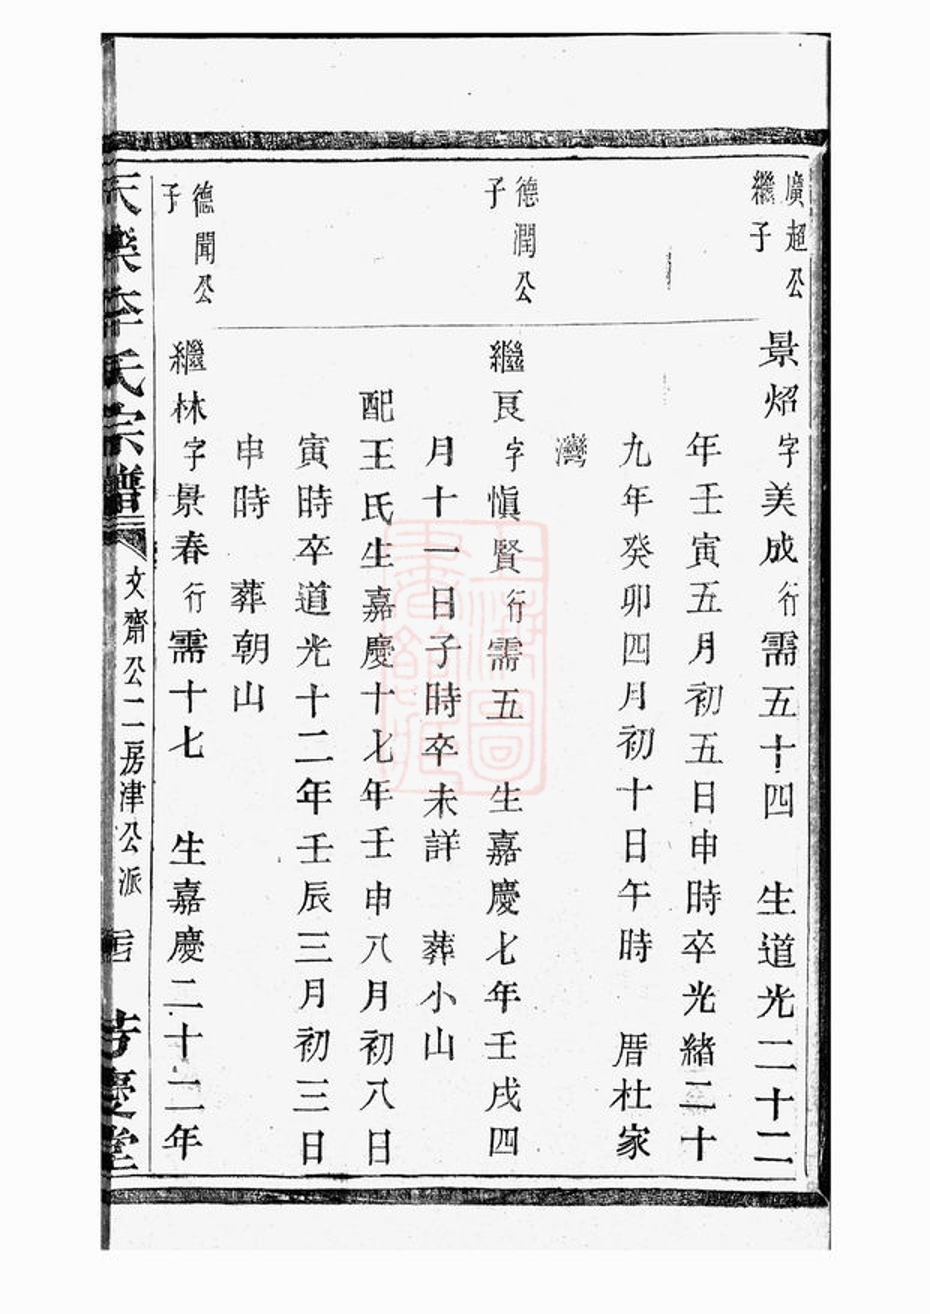 廣超公
繼子
景炤字美成行需五十四 生道光二十二
年壬寅五月初五日申時卒光緒二十
九年癸卯四月初十日午時 厝杜家
灣
德潤公
子
繼良字慎賢行需五 生嘉慶七年壬戌四
月十一日子時卒未詳 葬小山
配王氏生嘉慶十七年壬申八月初八日
寅時卒道光十二年壬辰三月初三日
申時 葬朝山
德聞公
子
繼林字景春行需十七 生嘉慶二十二年
天樂李氏宗譜
文齋公二房津公派
慶堂
上海圖
書館藏